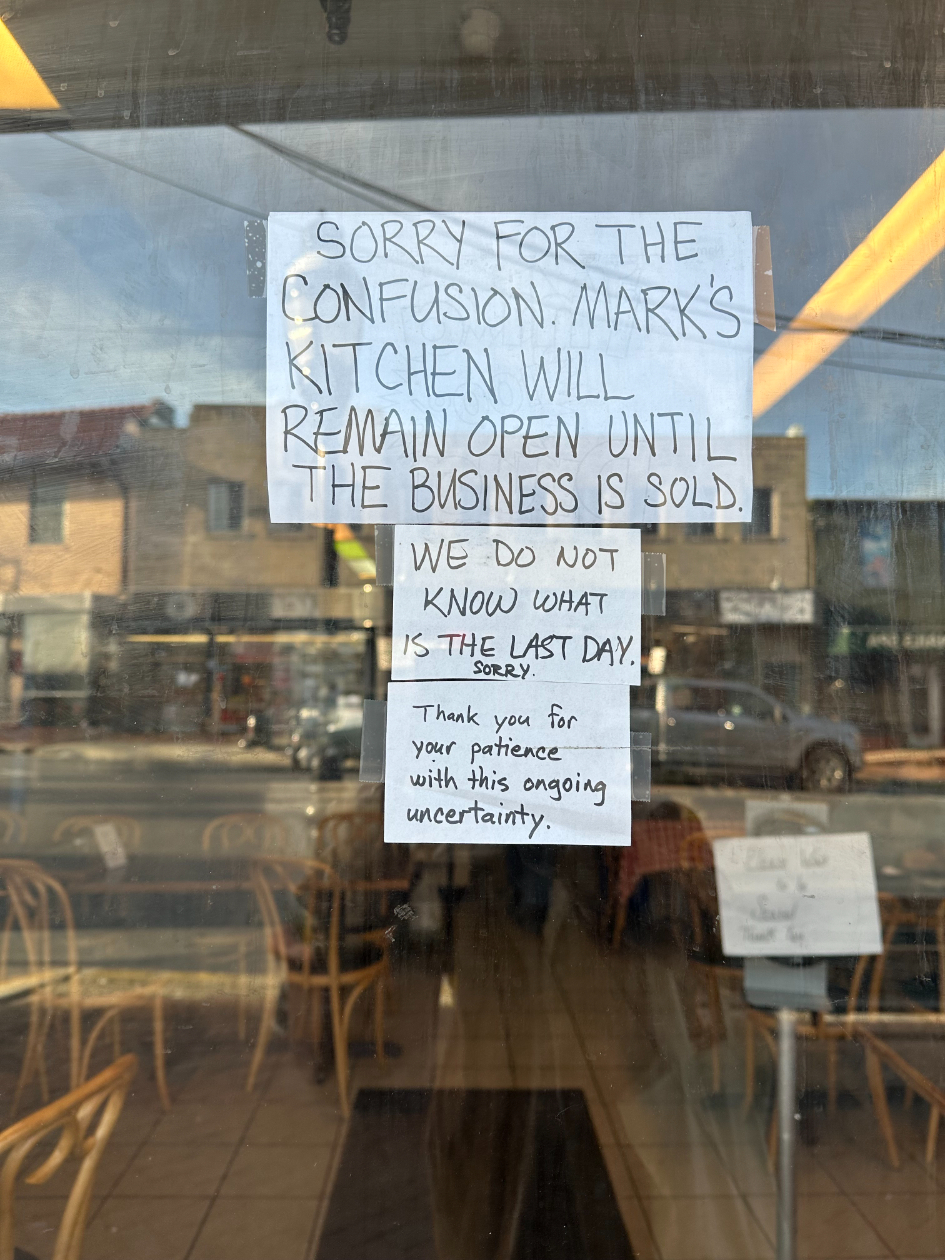 SORRY FOR THE
CONFUSION. MARK'S
KITCHEN WILL
REMAIN OPEN UNTIL
THE BUSINESS IS SOLD.
WE DO NOT
KNOW WHAT
IS THE LAST DAY.
SORRY.
Thank you for
your patience
with this ongoing
uncertainty.
Please Wait
to be
Seated
Thank You